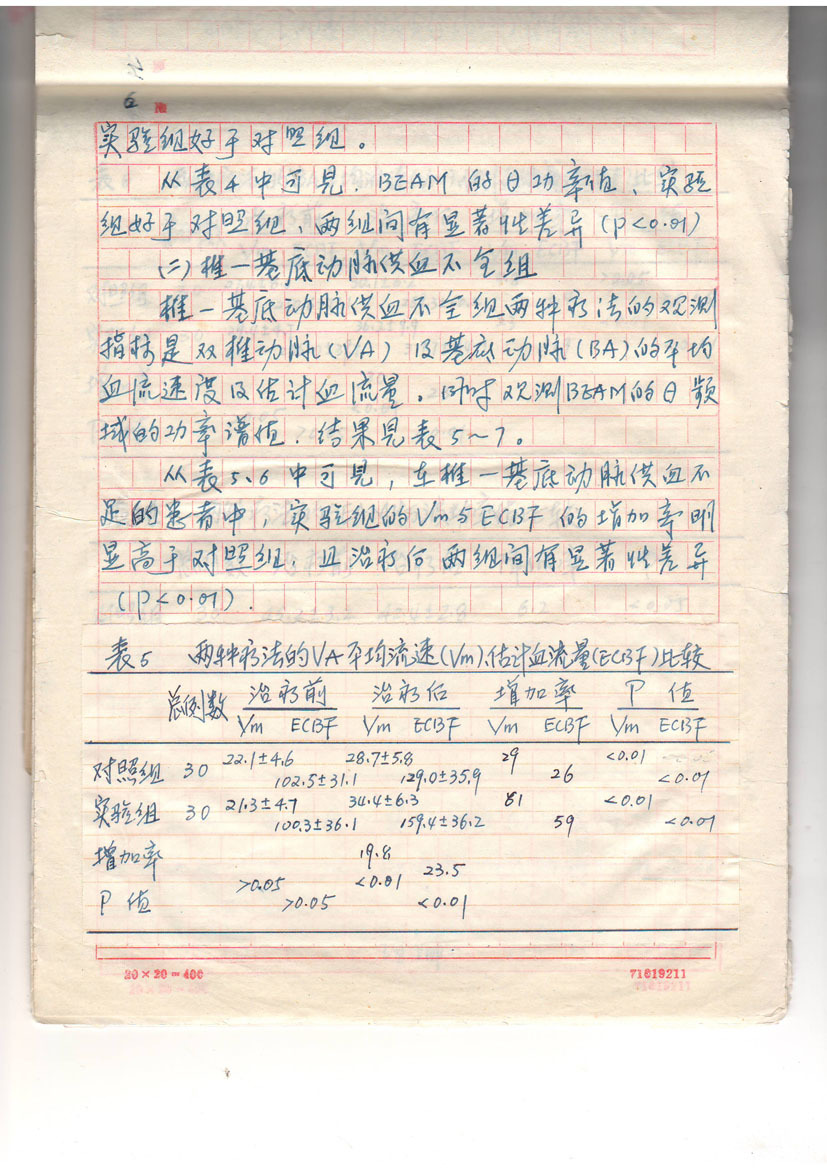 6
实验组好于对照组。
从表4中可见,BEAM的θ功率值,实验
组好于对照组,两组间有显著性差异(P<0.01)
(二)椎一基底动脉供血不全组
椎一基底动脉供血不全组两种疗法的观测
指标是双椎动脉(VA)及基底动脉(BA)的平均
血流速度及估计血流量。同时观测BEAM的θ频
域的功率谱值,结果见表5~7。
从表5.6中可见,在椎一基底动脉供血不
足的患者中,实验组的Vm与ECBF的增加率明
显高于对照组,且治疗后两组间有显著性差异
(P<0.01).
表5 两种疗法的VA平均流速(Vm)、估计血流量(ECBF)比较
总例数 治疗前 治疗后 增加率 P 值
Vm ECBF Vm ECBF Vm ECBF Vm ECBF
对照组 30 22.1±4.6 102.5±31.1 28.7±5.8 129.0±35.9 29 26 <0.01 <0.01
实验组 30 21.3±4.7 100.3±36.1 34.4±6.3 159.4±36.2 61 59 <0.01 <0.01
增加率 19.8 23.5
P 值 >0.05 >0.05 <0.01 <0.01
20×20=400 71819211